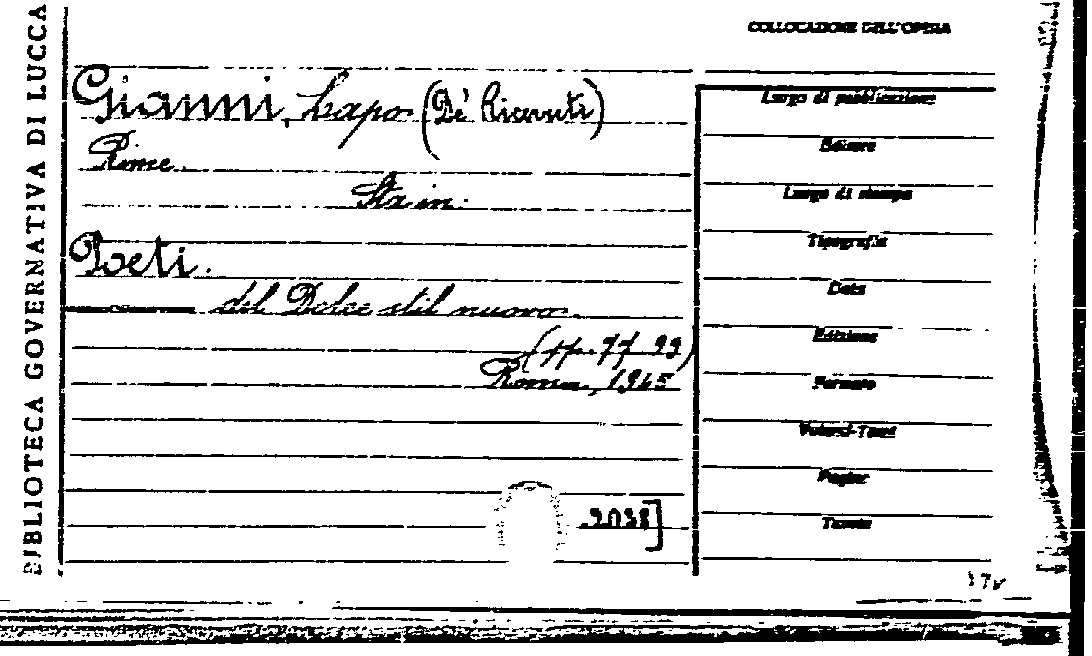 BIBLIOTECA GOVERNATIVA DI LUCCA
COLLOCAZIONE DELL'OPERA
Gianni, Lapo (De' Ricevuti)
Rime.
Sta in:
Poeti.
del Dolce stil nuovo.
(pp. 77-99)
Roma, 1945
2038]
Luogo di pubblicazione
Editore
Luogo di stampa
Tipografia
Data
Edizione
Formato
Volumi-Tomi
Pagine
Tavole